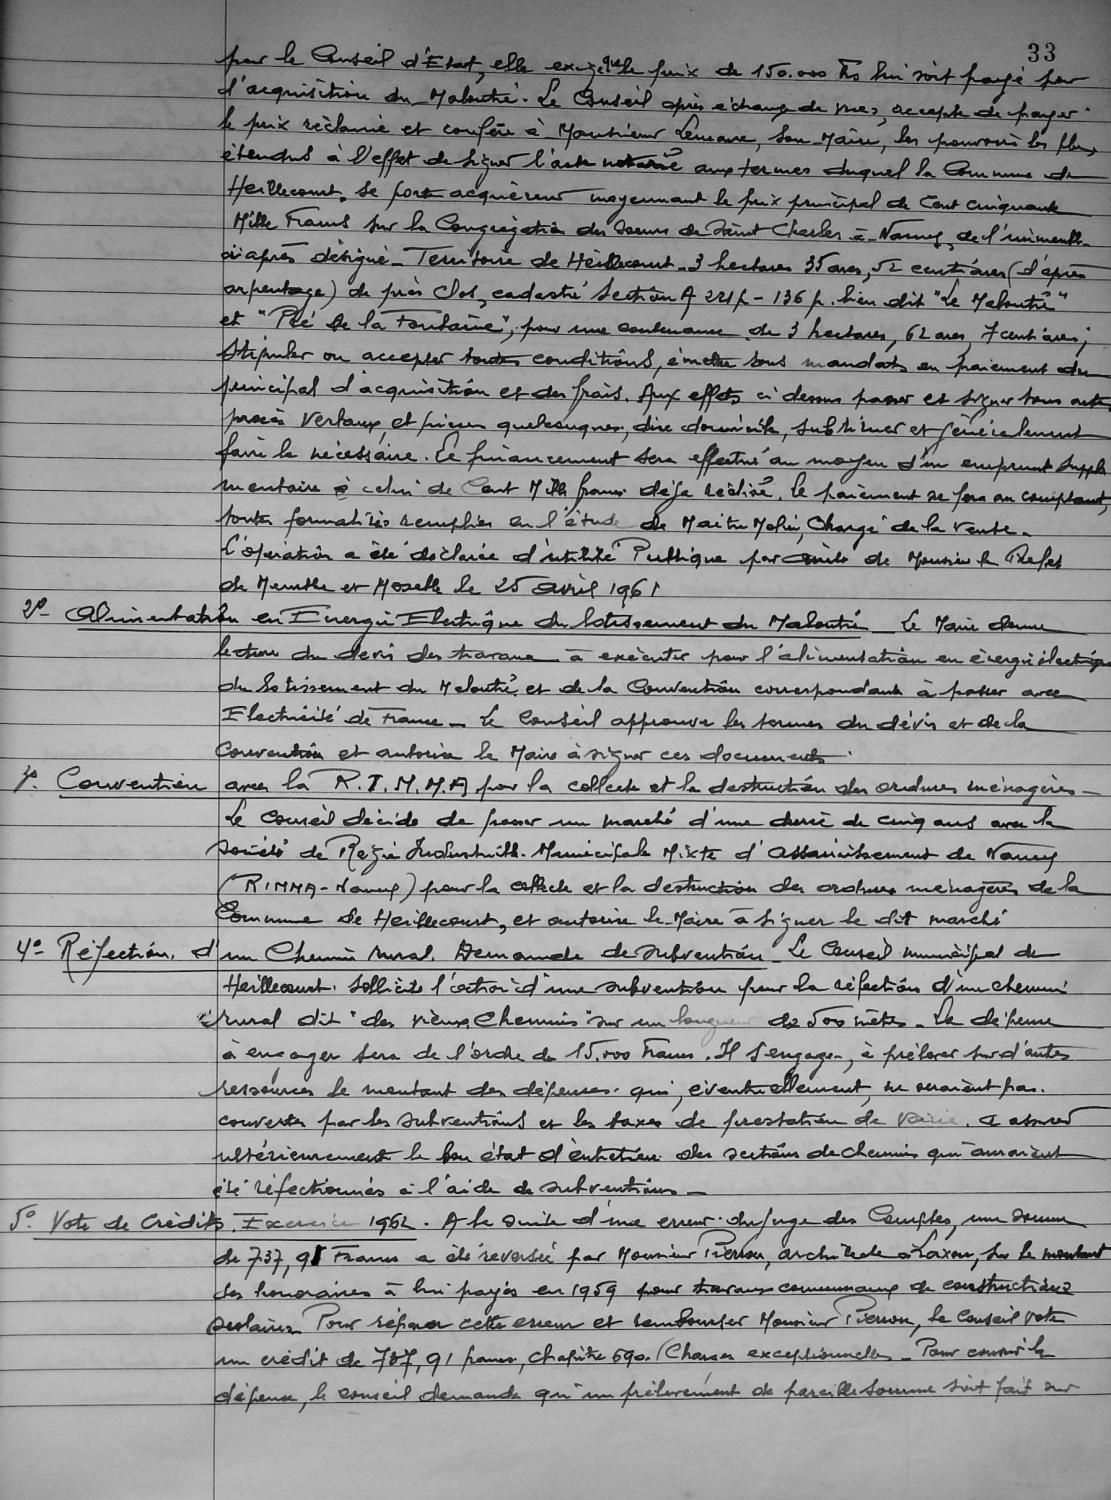 33
par le Conseil d'Etat, elle exige que le prix de 150.000 Frs lui soit payé par
l'acquisition du Maloutié. Le Conseil après échange de vues, accepte de payer
le prix réclamé et confère à Monsieur Lemare, son Maire, les pouvoirs les plus
étendus à l'effet de signer l'acte notarié aux termes duquel la Commune de
Heillecourt, se porte acquéreur moyennant le prix principal de Cent cinquante
Mille Francs sur la Congrégation des Soeurs de Saint Charles à Nancy, de l'immeuble
ci après désigné - Territoire de Heillecourt - 3 hectares 35 ares, 52 centiares (d'après
arpentage) de près clos, cadastré Section A 221p - 136 p. lieu dit "Le Maloutié"
et "Pré de la Fontaine", pour une contenance de 3 hectares, 62 ares, 7 centiares;
Stipuler ou accepter toutes conditions, émettre tous mandats en paiement du
principal d'acquisition et des frais. Aux effets ci dessus passer et signer tous actes
procès verbaux et pièces quelconques, élire domicile, substituer et généralement
faire le nécessaire. Le financement sera effectué au moyen d'un emprunt supplé
mentaire à celui de Cent Mille francs déjà réalisé. le paiement se fera au comptant,
toutes formalités remplies en l'étude de Maitre Molin, Chargé de la vente.
L'opération a été déclarée d'utilité Publique par arrêté de Monsieur le Préfet
de Meurthe et Moselle le 25 avril 1961
2° - Alimentation en Energie Electrique du lotissement du Maloutié - Le Maire donne
lecture du devis des travaux à exécuter pour l'alimentation en énergie électrique
du lotissement du Maloutié et de la Convention correspondante à passer avec
Electricité de France - Le Conseil approuve les termes du devis et de la
Convention et autorise le Maire à signer ces documents.
3° - Convention avec la R.I.M.M.A pour la collecte et la destruction des ordures ménagères -
Le Conseil décide de passer un marché d'une durée de cinq ans avec la
Société de Régie Industrielle Municipale Mixte d'Assainissement de Nancy
(RIMMA-Nancy) pour la collecte et la destruction des ordures ménagères de la
Commune de Heillecourt, et autorise le Maire à signer le dit marché
4° - Réfection d'un Chemin rural. Demande de subvention - Le Conseil municipal de
Heillecourt sollicite l'octroi d'une subvention pour la réfection d'un chemin
rural dit "des vieux Chemins" sur une longueur de 500 mètres - La dépense
à engager sera de l'ordre de 15.000 Francs. Il s'engage, à prélever sur d'autres
ressources le montant des dépenses qui, éventuellement, ne seraient pas
couvertes par les subventions et les taxes de prestation de voirie. à assurer
ultérieurement le bon état d'entretien des sections de chemins qui auraient
été réfectionnés à l'aide de subventions -
5° - Vote de Crédits. Exercice 1962. A la suite d'une erreur du juge des Comptes, une somme
de 737,91 Francs a été reversée par Monsieur Pierron, architecte à Laxou, sur le montant
des honoraires à lui payés en 1959 pour travaux communaux de constructions
scolaires. Pour réparer cette erreur et rembourser Monsieur Pierron, le Conseil vote
un crédit de 737,91 francs, Chapitre 690. (Charges exceptionnelles - Pour couvrir la
dépense, le conseil demande qu'un prélèvement de pareille somme soit fait sur